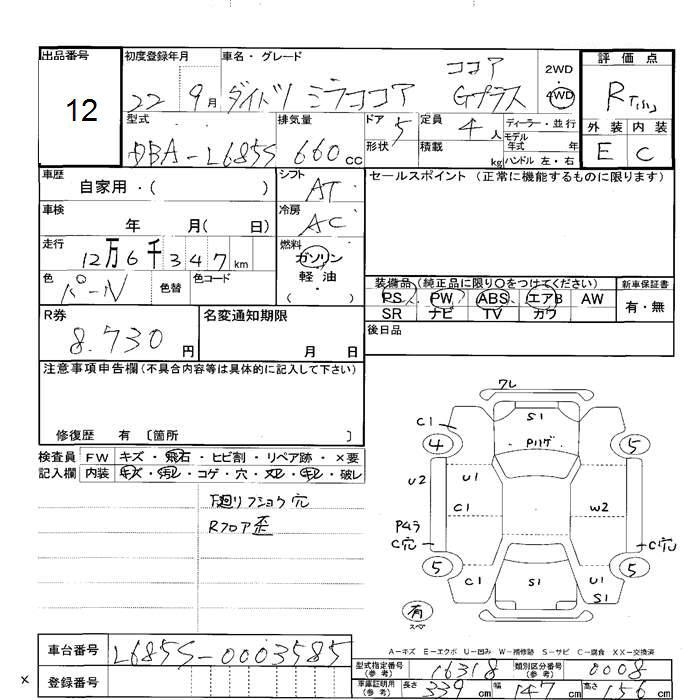 出品番号 初度登録年月 車名・グレード 評価点
12
22 9月 ダイハツ ミラココア ココア Gプラス
2WD
・
4WD
R
外装 内装
E C
型式 排気量 ドア 形状 定員 積載 ディーラー・並行
モデル年式 年
kg ハンドル 左・右
DBA-L685S 660cc 5 4人
車歴 自家用・( ) シフト AT セールスポイント (正常に機能するものに限ります)
車検 年 月( 日) 冷房 AC
走行 12万6千347km 燃料 ガソリン
軽油
( ・ )
色 パール 色替 色コード
装備品(純正品に限り○をつけてください) 新車保証書
PS PW ABS エアB AW 有・無
SR ナビ TV カワ
後日品
R券 8.730円 名変通知期限 月 日
注意事項申告欄(不具合内容等は具体的に記入して下さい)
修復歴 有 〔箇所 〕
検査員 FW キズ・飛石・ヒビ割・リペア跡・×要
記入欄 内装 キズ・汚レ・コゲ・穴・スレ・キレ・破レ
下廻リフショウ穴
Rフロア歪
ワレ
C1 S1
4 5
U2 U1 C1 W2
C穴 C穴
5 5
C1 S1 U1
S1
有
スペア
A-キズ E-エクボ U-凹み W-補修跡 S-サビ C-腐食 XX-交換済
車台番号 L685S-0003585
型式指定番号(参考) 16318 類別区分番号(参考) 0008
× 登録番号
車庫証明用(参考) 長さ 339cm 幅 147cm 高さ 156cm